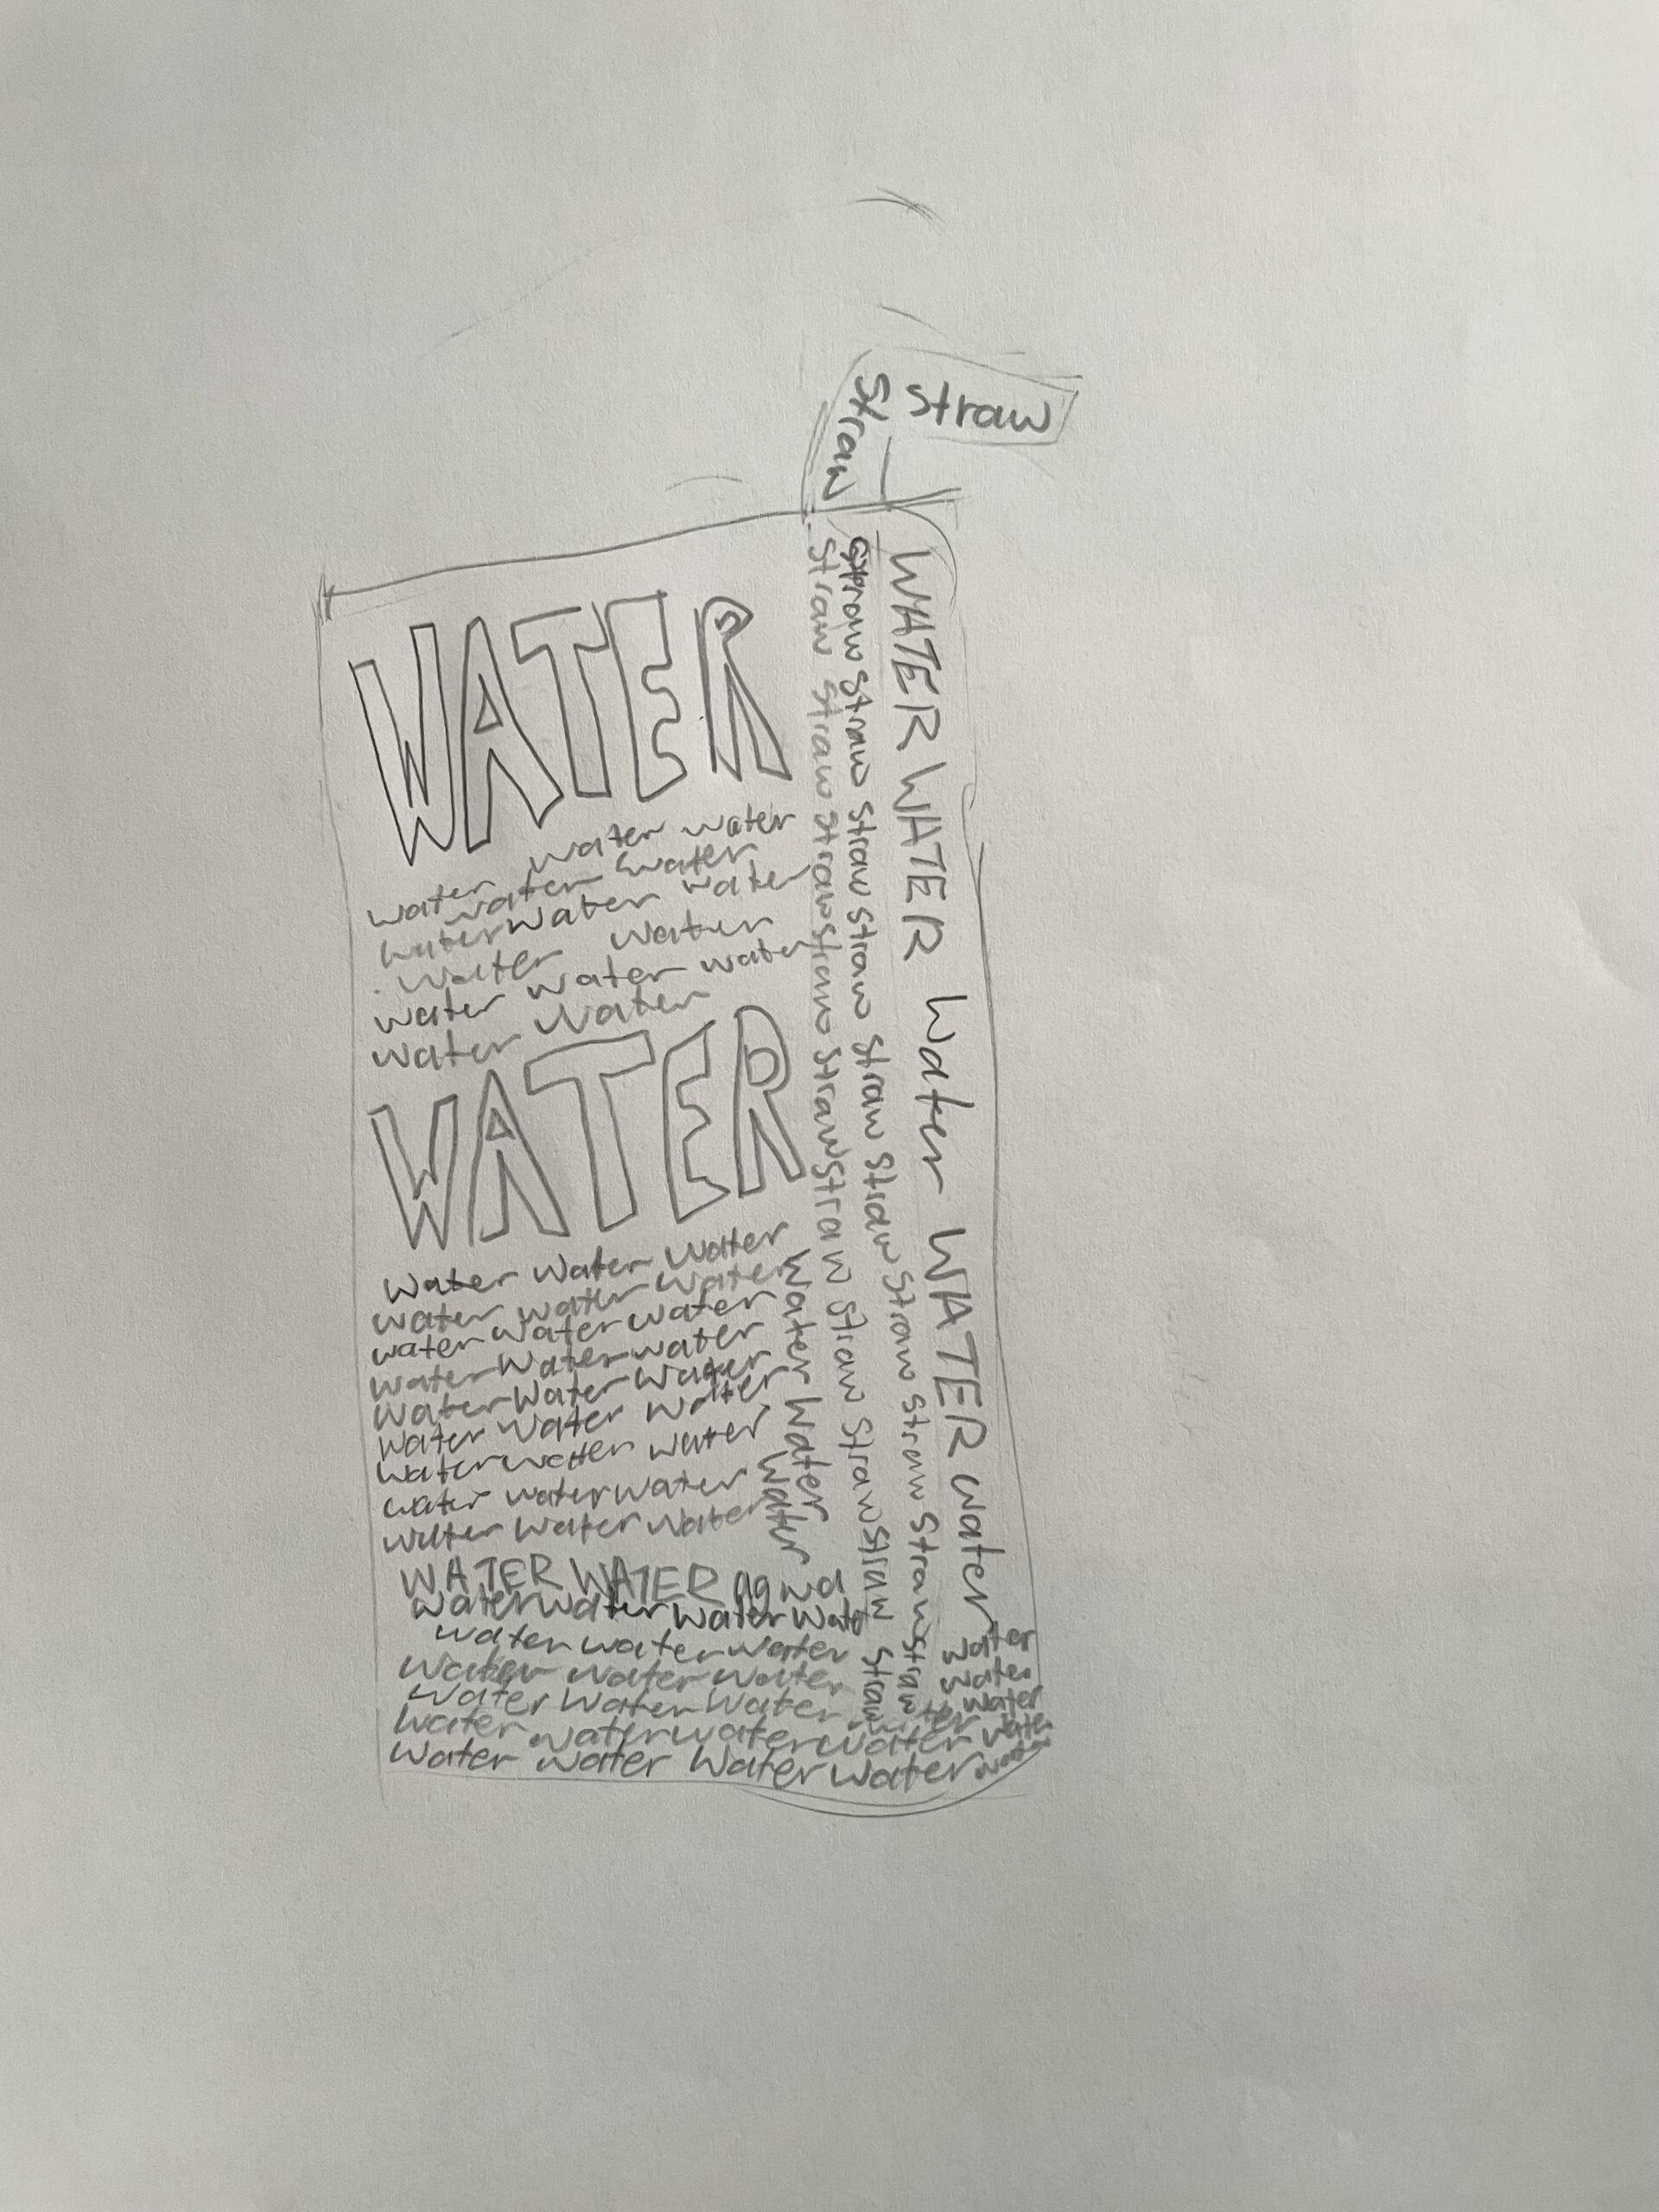 straw
straw
WATER
water water water
water water water
water water water
water water
water water water
water water
WATER
Water Water Water
water water water
water water water
water water water
water water water
water water water
water water water
water water water
water water water
WATER WATER agua
water water water wate
water water water
water water water
water water water
water water water water
water water water water
straw straw straw straw straw straw straw straw straw straw straw
straw straw straw straw straw straw straw straw straw straw straw
WATER WATER water WATER water
water water
water
water
water
water
water
water